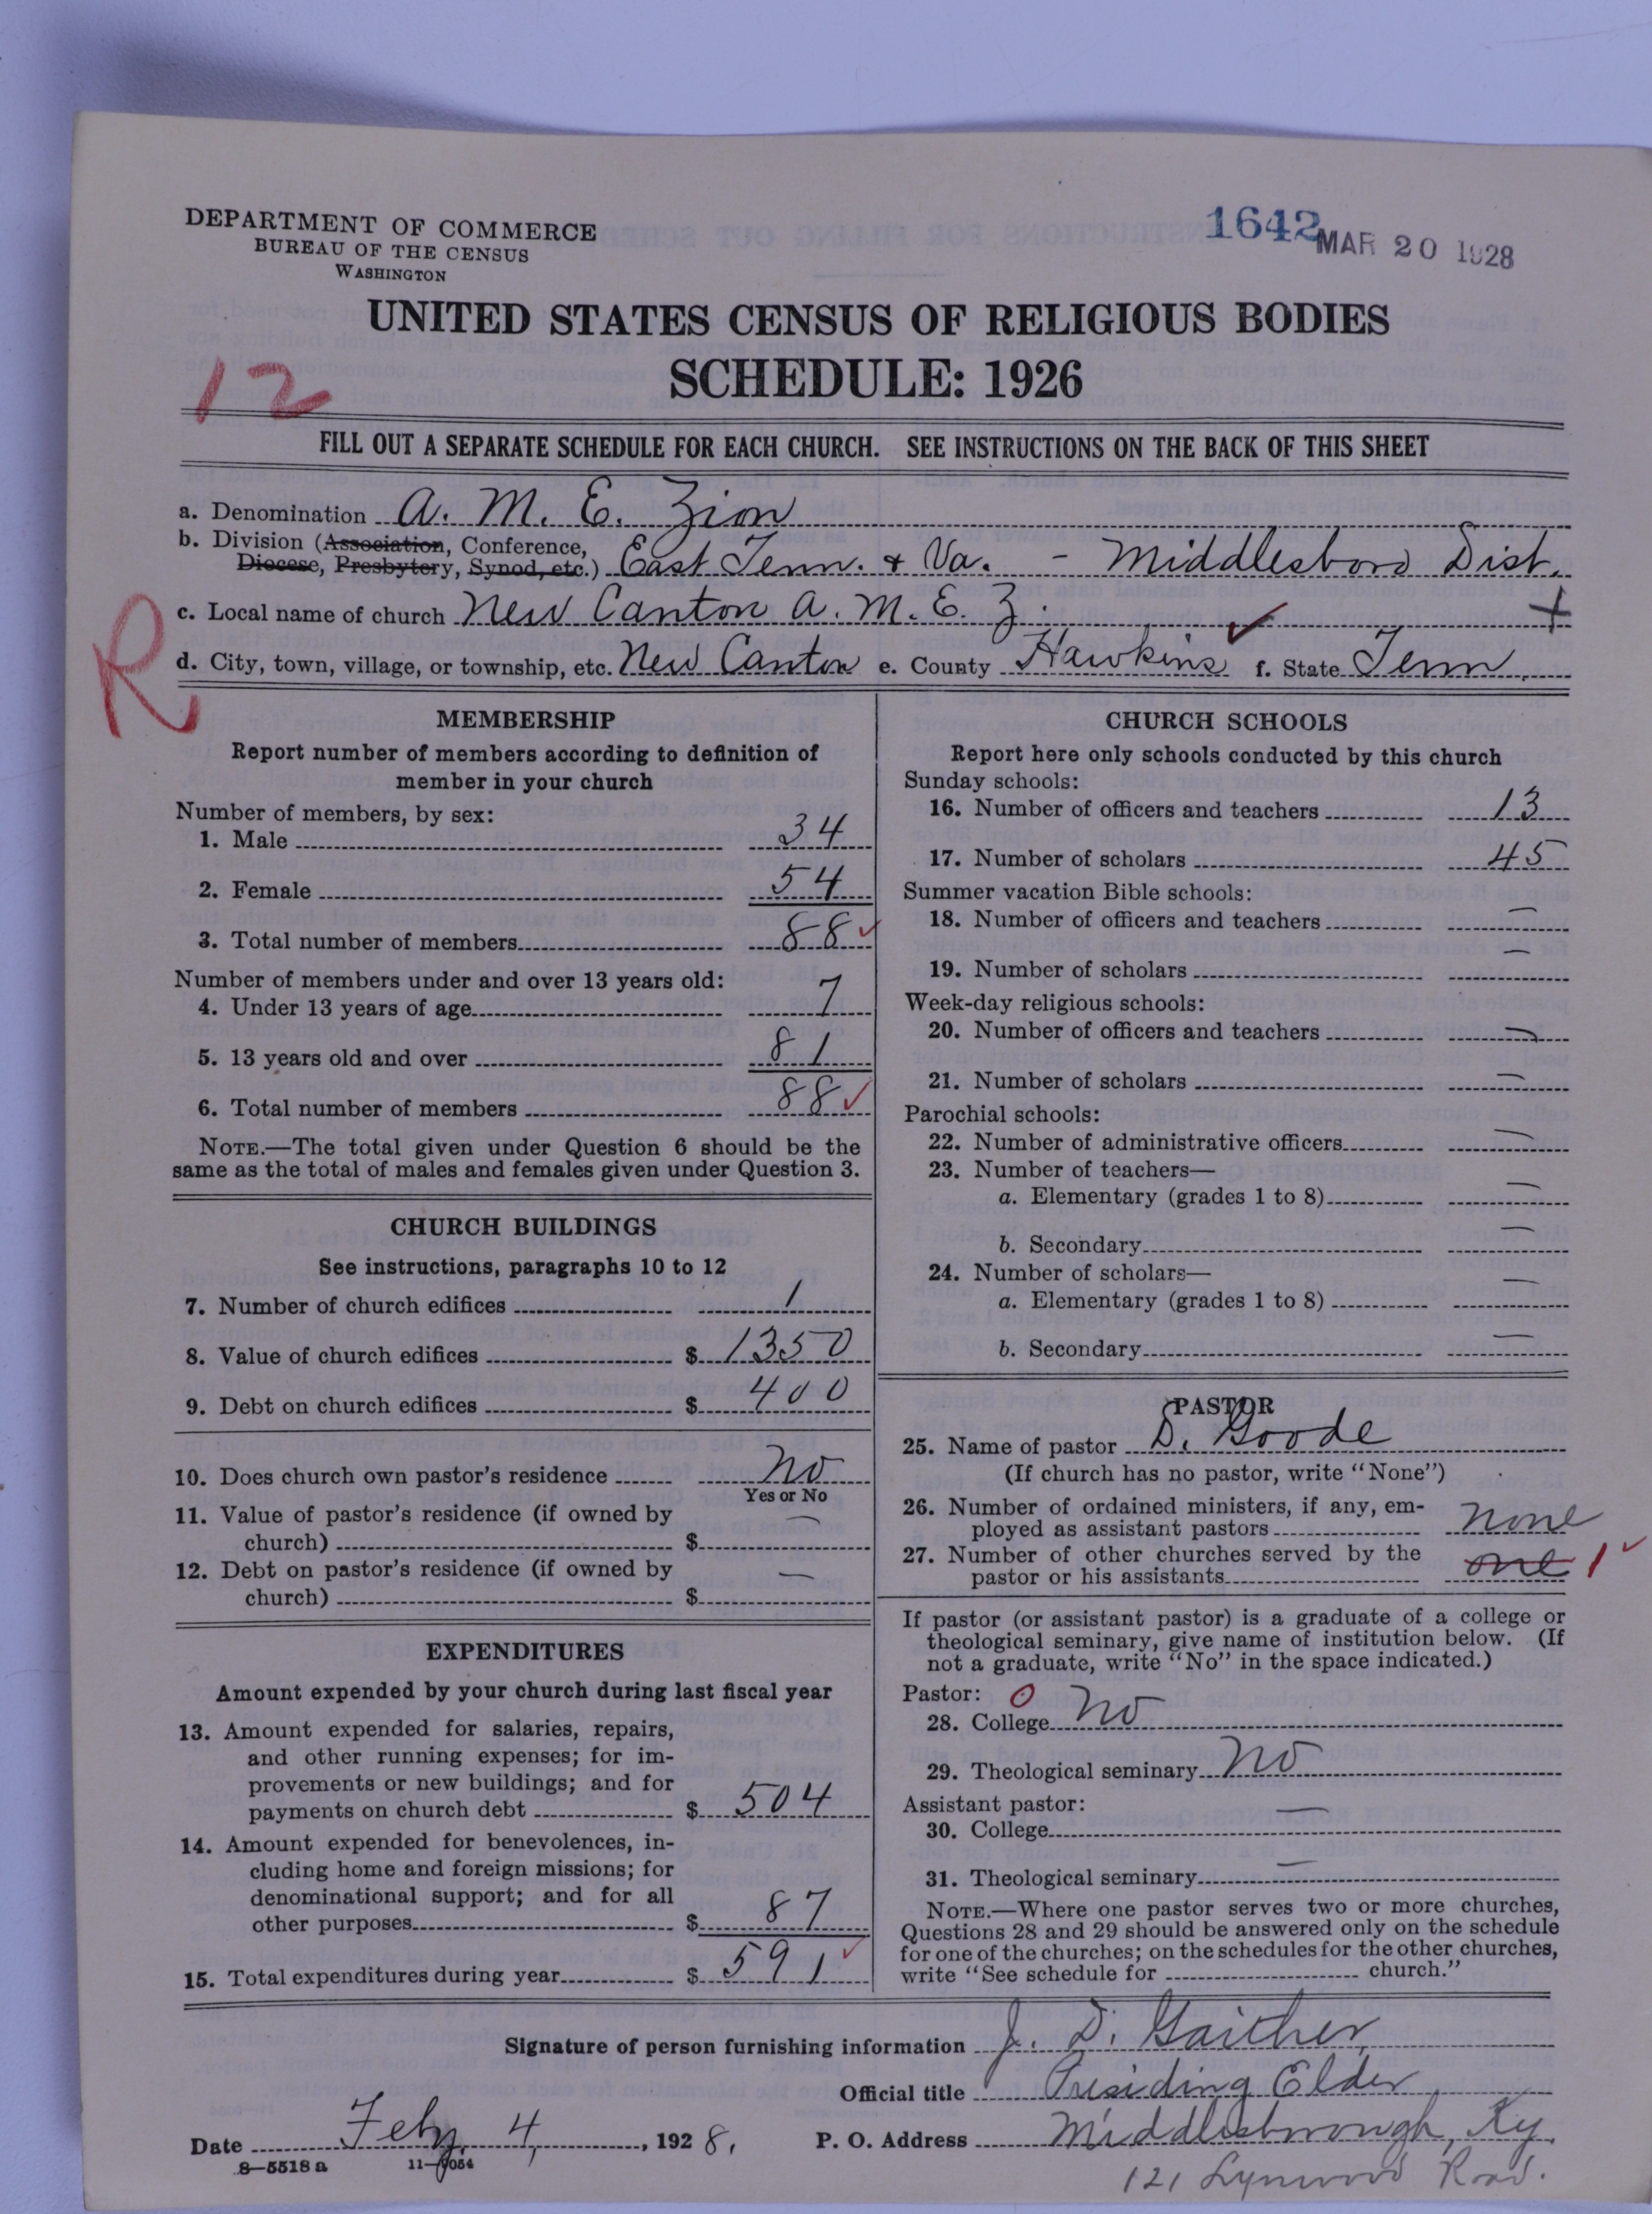 DEPARTMENT OF COMMERCE
BUREAU OF THE CENSUS
WASHINGTON
1642
MAR 20 1928
UNITED STATES CENSUS OF RELIGIOUS BODIES
SCHEDULE: 1926
12
FILL OUT A SEPARATE SCHEDULE FOR EACH CHURCH. SEE INSTRUCTIONS ON THE BACK OF THIS SHEET
a. Denomination A. M. E. Zion
b. Division (Association, Conference,
Diocese, Presbytery, Synod, etc.) East Tenn. & Va. - Middlesboro Dist.
c. Local name of church New Canton A. M. E. Z. +
R
d. City, town, village, or township, etc. New Canton e. County Hawkins ✓ f. State Tenn
MEMBERSHIP
Report number of members according to definition of
member in your church
Number of members, by sex:
1. Male 34
2. Female 54
3. Total number of members 88 ✓
Number of members under and over 13 years old:
4. Under 13 years of age 7
5. 13 years old and over 81
6. Total number of members 88 ✓
NOTE.—The total given under Question 6 should be the
same as the total of males and females given under Question 3.
CHURCH BUILDINGS
See instructions, paragraphs 10 to 12
7. Number of church edifices 1
8. Value of church edifices $ 1350
9. Debt on church edifices $ 400
10. Does church own pastor's residence No
Yes or No
11. Value of pastor's residence (if owned by
church) $ —
12. Debt on pastor's residence (if owned by
church) $ —
EXPENDITURES
Amount expended by your church during last fiscal year
13. Amount expended for salaries, repairs,
and other running expenses; for im-
provements or new buildings; and for
payments on church debt $ 504
14. Amount expended for benevolences, in-
cluding home and foreign missions; for
denominational support; and for all
other purposes $ 87
15. Total expenditures during year $ 591 ✓
CHURCH SCHOOLS
Report here only schools conducted by this church
Sunday schools:
16. Number of officers and teachers 13
17. Number of scholars 45
Summer vacation Bible schools:
18. Number of officers and teachers —
19. Number of scholars —
Week-day religious schools:
20. Number of officers and teachers —
21. Number of scholars —
Parochial schools:
22. Number of administrative officers —
23. Number of teachers—
a. Elementary (grades 1 to 8) —
b. Secondary —
24. Number of scholars—
a. Elementary (grades 1 to 8) —
b. Secondary —
PASTOR
25. Name of pastor D. Goode
(If church has no pastor, write "None")
26. Number of ordained ministers, if any, em-
ployed as assistant pastors none
27. Number of other churches served by the
pastor or his assistants one 1 ✓
If pastor (or assistant pastor) is a graduate of a college or
theological seminary, give name of institution below. (If
not a graduate, write "No" in the space indicated.)
Pastor: 0
28. College No
29. Theological seminary No
Assistant pastor:
30. College —
31. Theological seminary —
NOTE.—Where one pastor serves two or more churches,
Questions 28 and 29 should be answered only on the schedule
for one of the churches; on the schedules for the other churches,
write "See schedule for church."
Signature of person furnishing information J. D. Gaither
Official title Presiding Elder
Date Feby. 4, 1928. P. O. Address Middlesbrough, Ky.
8—5518 a 11—9054
121 Lynwood Road.